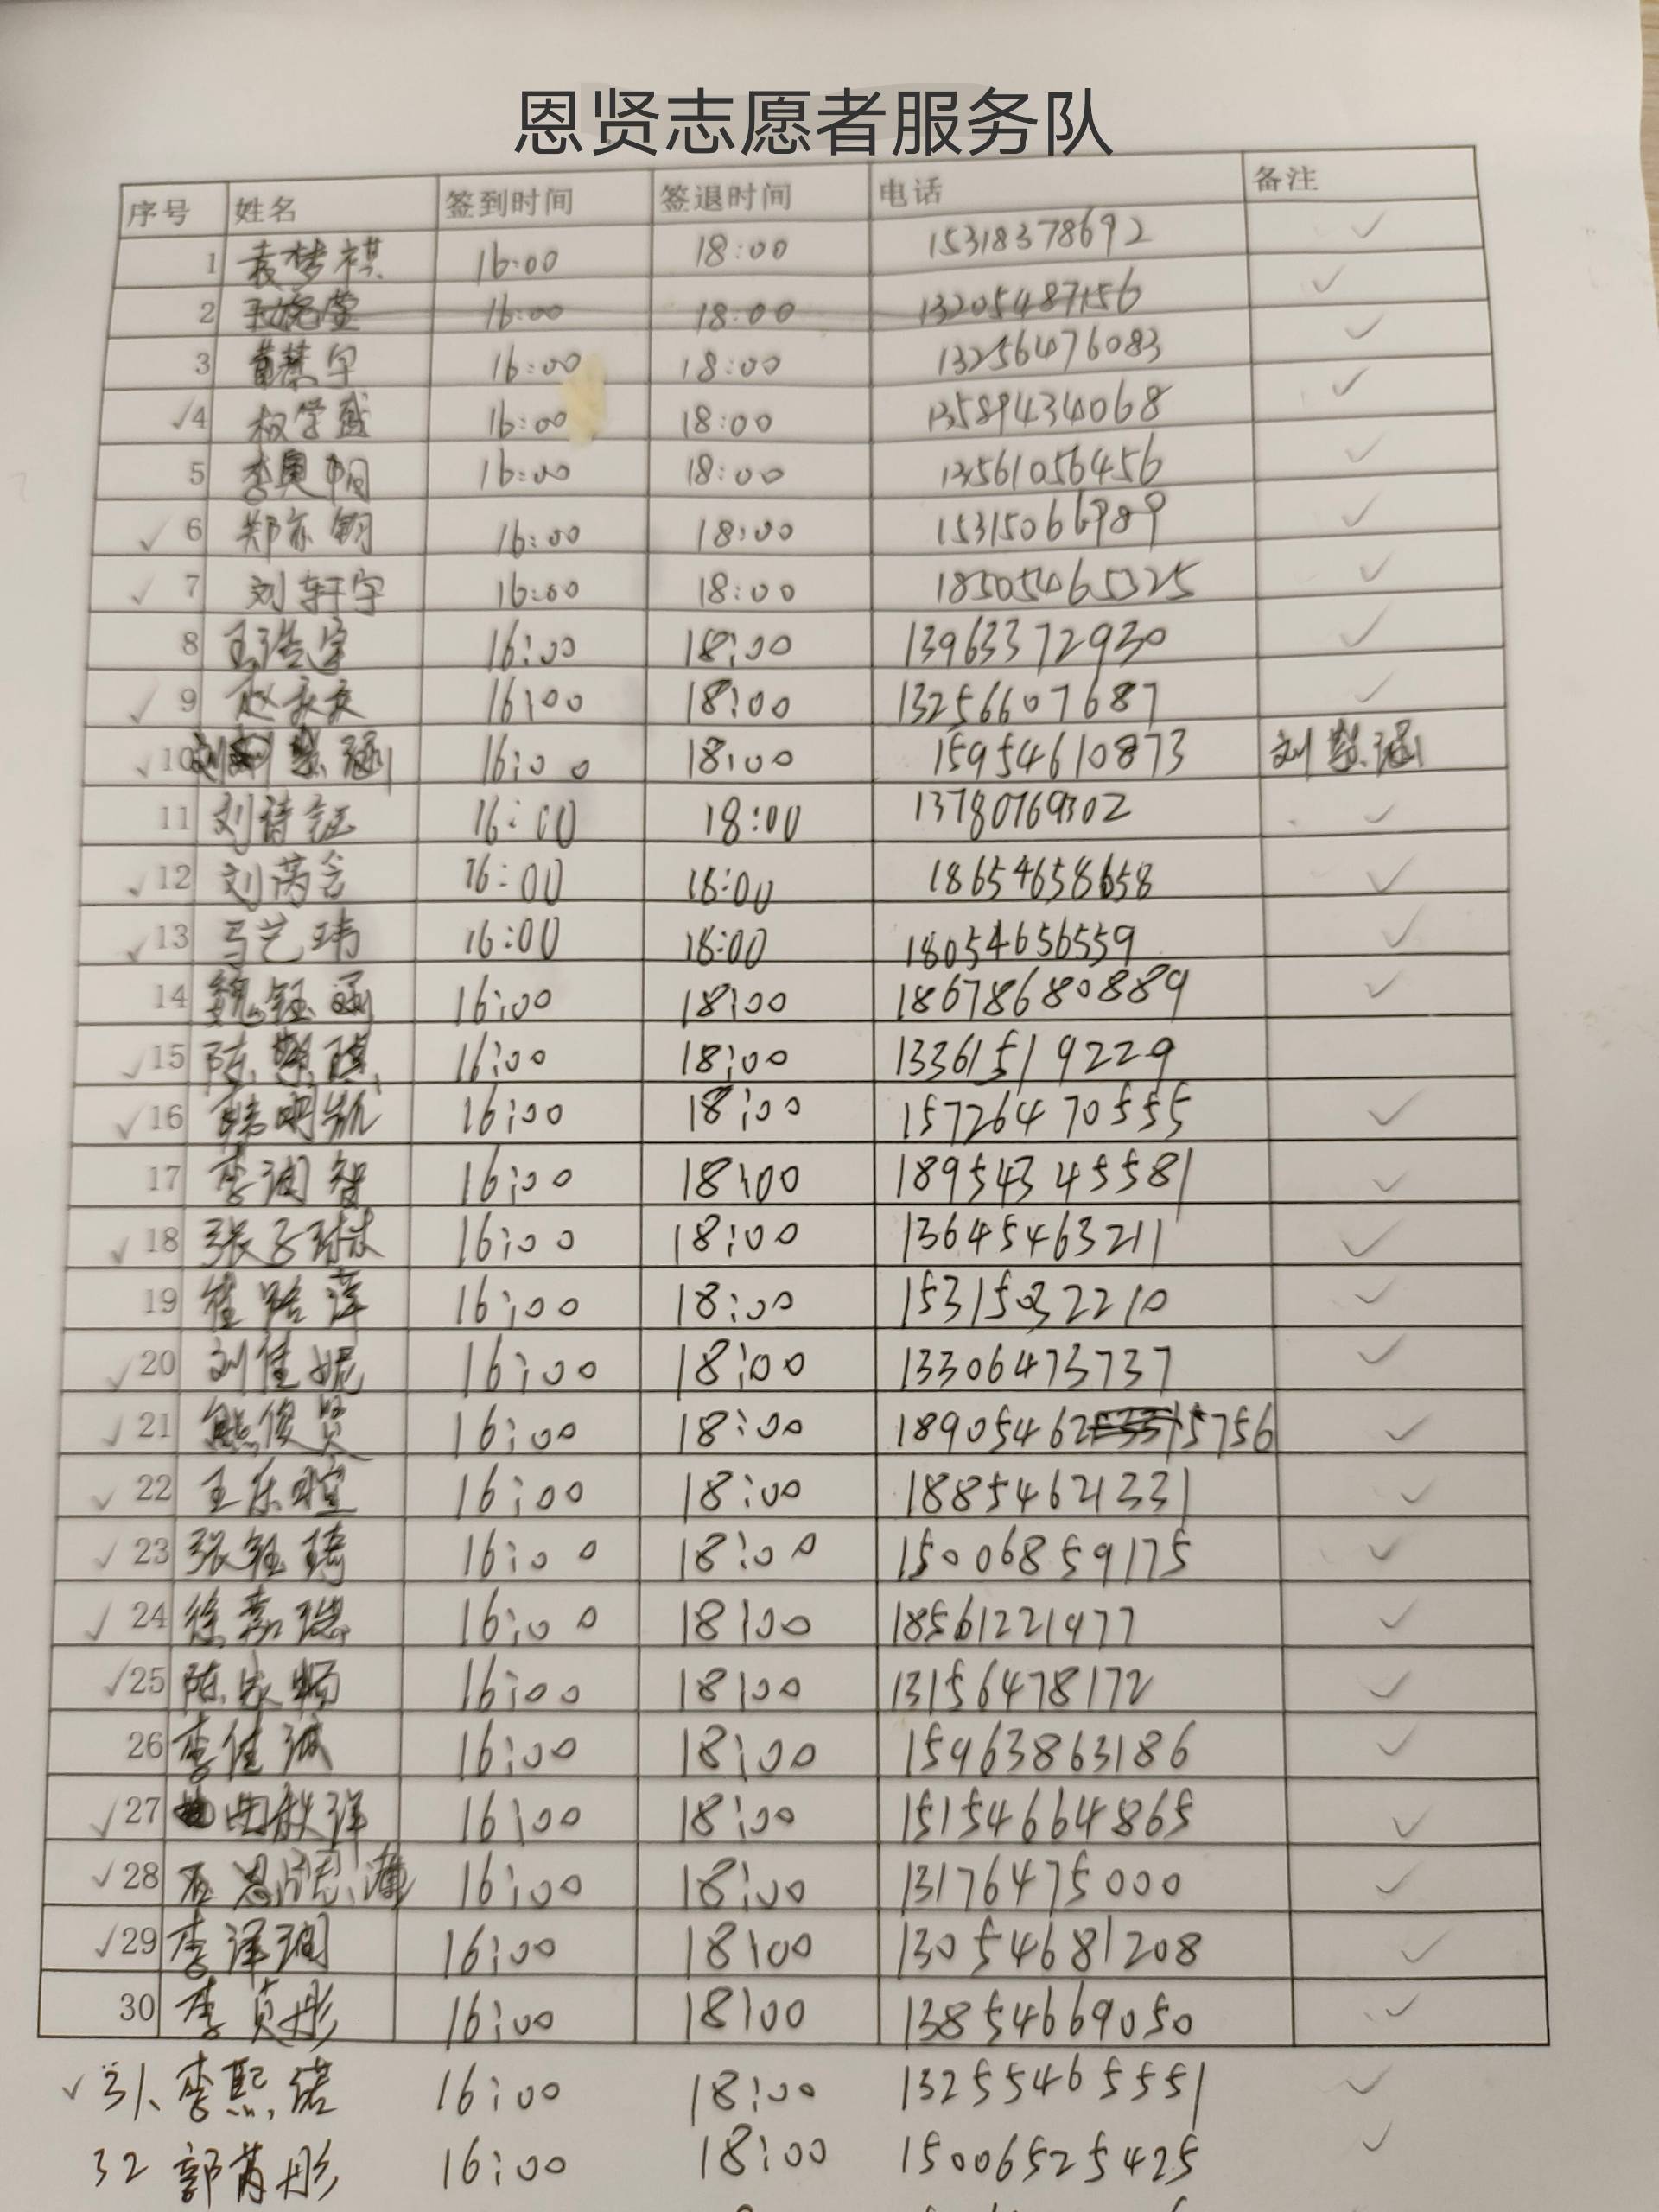 恩贤志愿者服务队
序号 姓名 签到时间 签退时间 电话 备注
1 袁梦祺 16:00 18:00 15318378692 ✓
2 16:00 18:00 13205487156 ✓
3 黄慧宇 16:00 18:00 13256476083 ✓
✓4 权学盛 16:00 18:00 13589434068 ✓
5 李奥帼 16:00 18:00 13561056456 ✓
✓ 6 郑亦钥 16:00 18:00 15315066989 ✓
✓ 7 刘轩宇 16:00 18:00 18505465325 ✓
8 王浩宇 16:00 18:00 13963372930 ✓
✓ 9 赵 16:00 18:00 13256607687 ✓
✓10 刘慧涵 16:00 18:00 15954610873 刘慧涵
11 刘诗钰 16:00 18:00 13780769302 ✓
✓12 刘芮含 16:00 18:00 18654658658 ✓
✓13 马艺玮 16:00 18:00 18054656559 ✓
14 魏钰涵 16:00 18:00 18678680889 ✓
✓15 陈慧琪 16:00 18:00 13361519229
✓16 韩明凯 16:00 18:00 15726470555 ✓
17 李润智 16:00 18:00 18954345581 ✓
✓18 张子琳 16:00 18:00 13645463211 ✓
19 崔路萍 16:00 18:00 15315032210 ✓
✓20 刘佳妮 16:00 18:00 13306473737 ✓
✓21 熊俊贤 16:00 18:00 18905462 15756 ✓
✓22 王乐暄 16:00 18:00 18854621331 ✓
✓23 张钰琦 16:00 18:00 15006859175 ✓
✓24 徐嘉璐 16:00 18:00 18561221977 ✓
✓25 陈畅 16:00 18:00 13156478172 ✓
26 李佳 16:00 18:00 15963863186 ✓
✓27 田救译 16:00 18:00 15154664865 ✓
✓28 16:00 18:00 13176475000 ✓
✓29 李泽润 16:00 18:00 13054681208 ✓
30 李贞彤 16:00 18:00 13854669050 ✓
✓31、李熙诺 16:00 18:00 13255465551 ✓
32 郭芮彤 16:00 18:00 15006525425 ✓